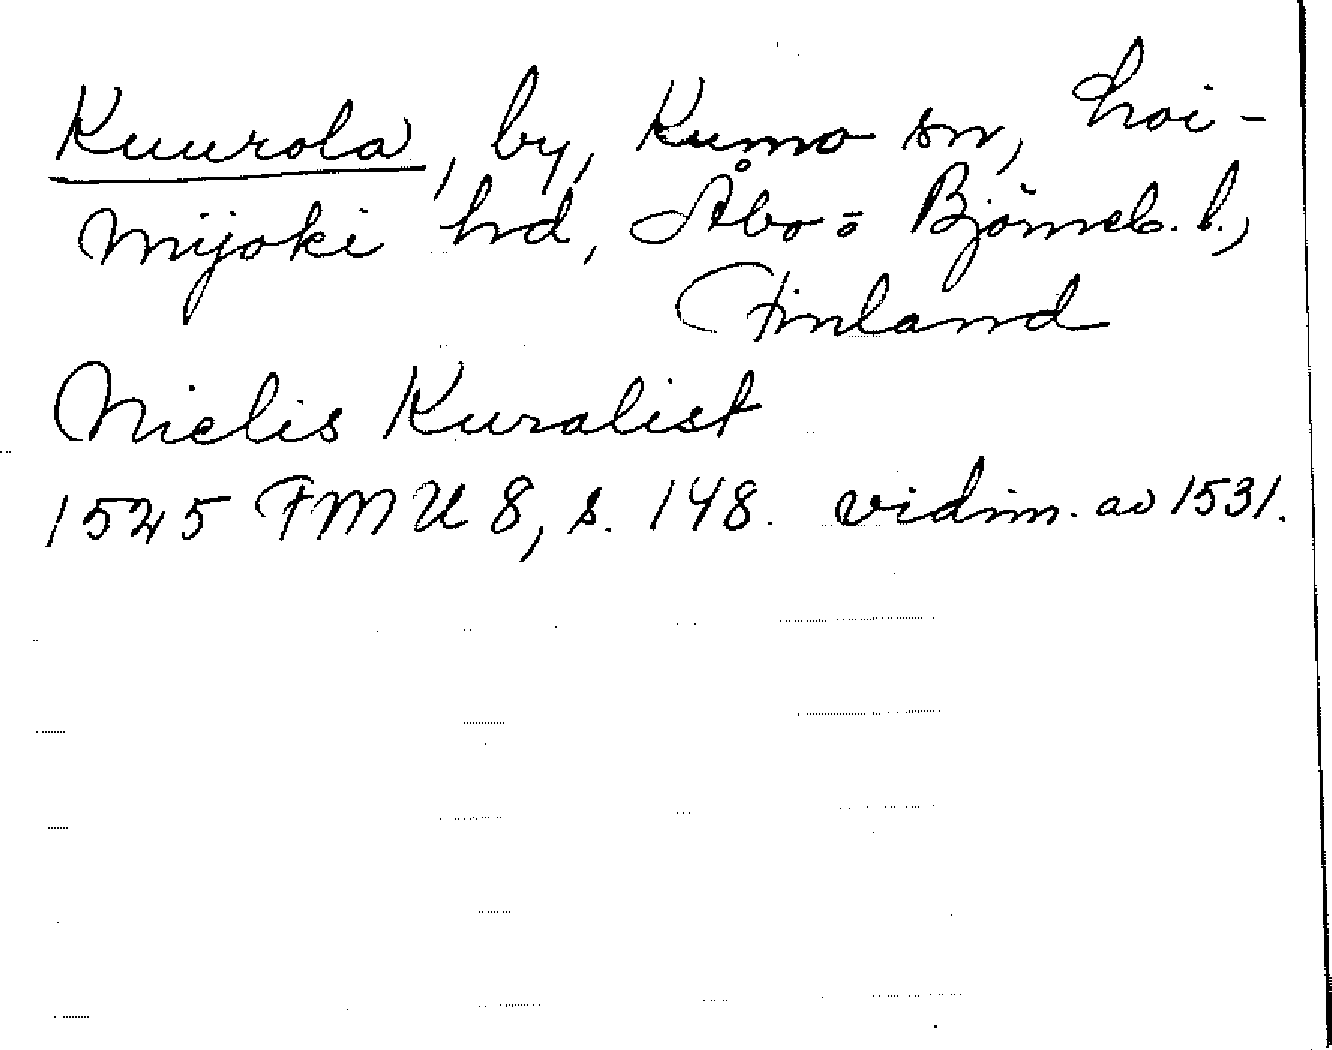 Kuurola, by, Kumo sn, Loi-
mijoki hd, Åbo= Björneb. l.,
Finland
Nielis Kuralist
1525 FMU 8, s. 148. vidim. av 1531.